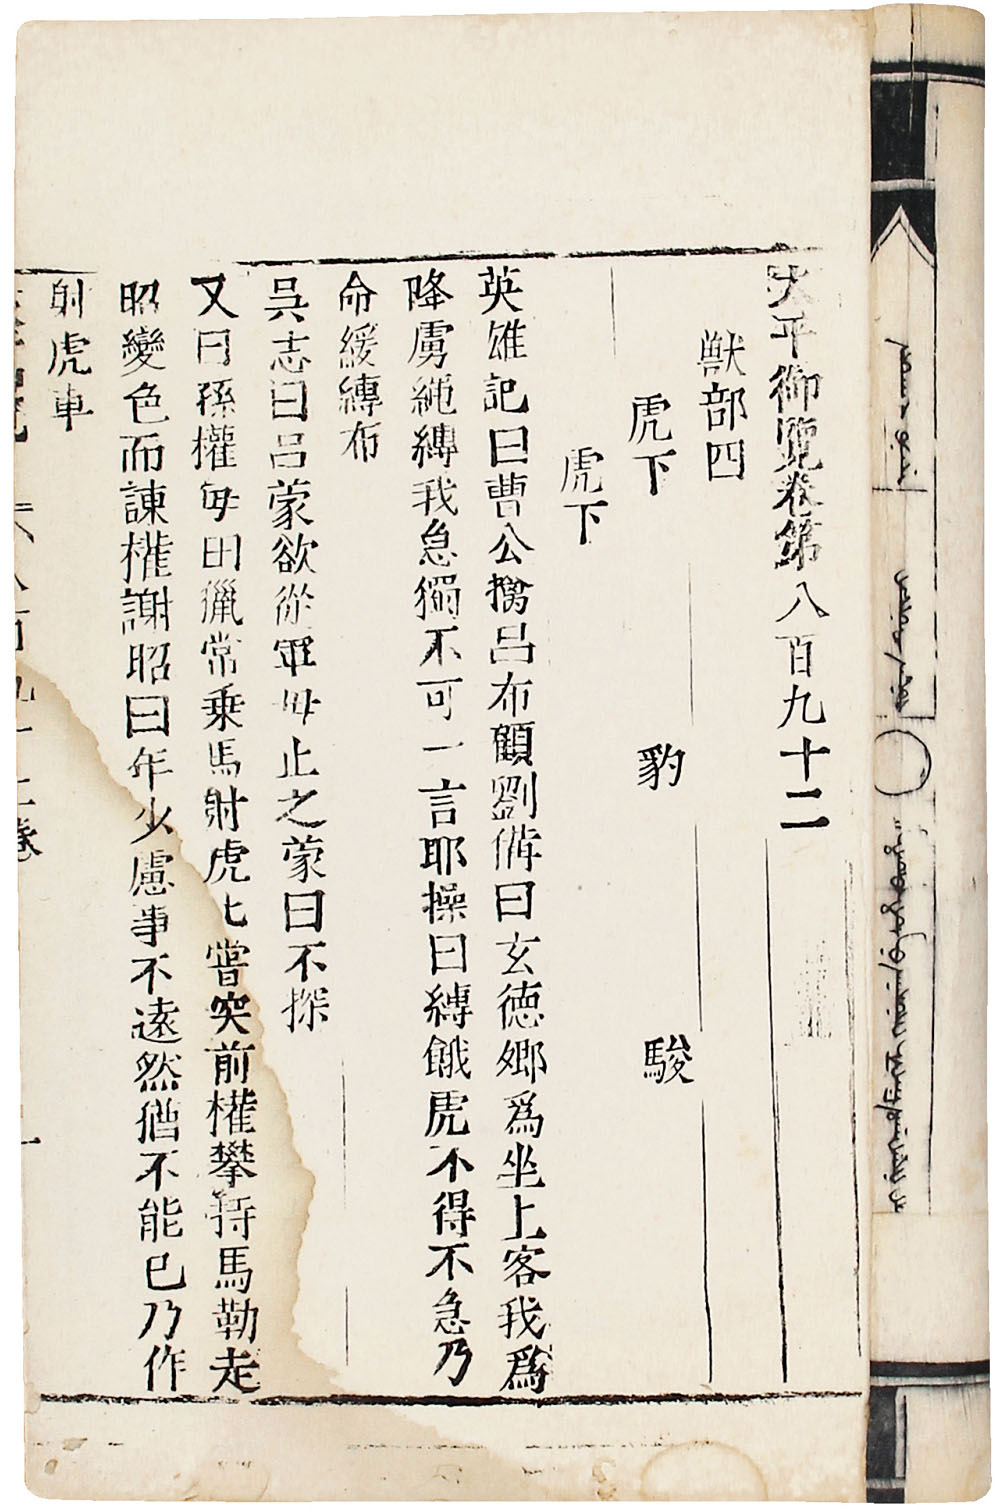 太平御覽卷第八百九十二
獸部四
虎下 豹 駿
虎下
英雄記曰曹公擒呂布顧劉備曰玄德鄉爲坐上客我爲
降虜繩縛我急獨不可一言耶操曰縛餓虎不得不急乃
命緩縛布
吳志曰呂蒙欲從軍毋止之蒙曰不探
又曰孫權每田獵常乗馬射虎 嘗突前權攀持馬勒走
昭變色而諫權謝昭曰年少慮事不遠然猶不能已乃作
射虎車